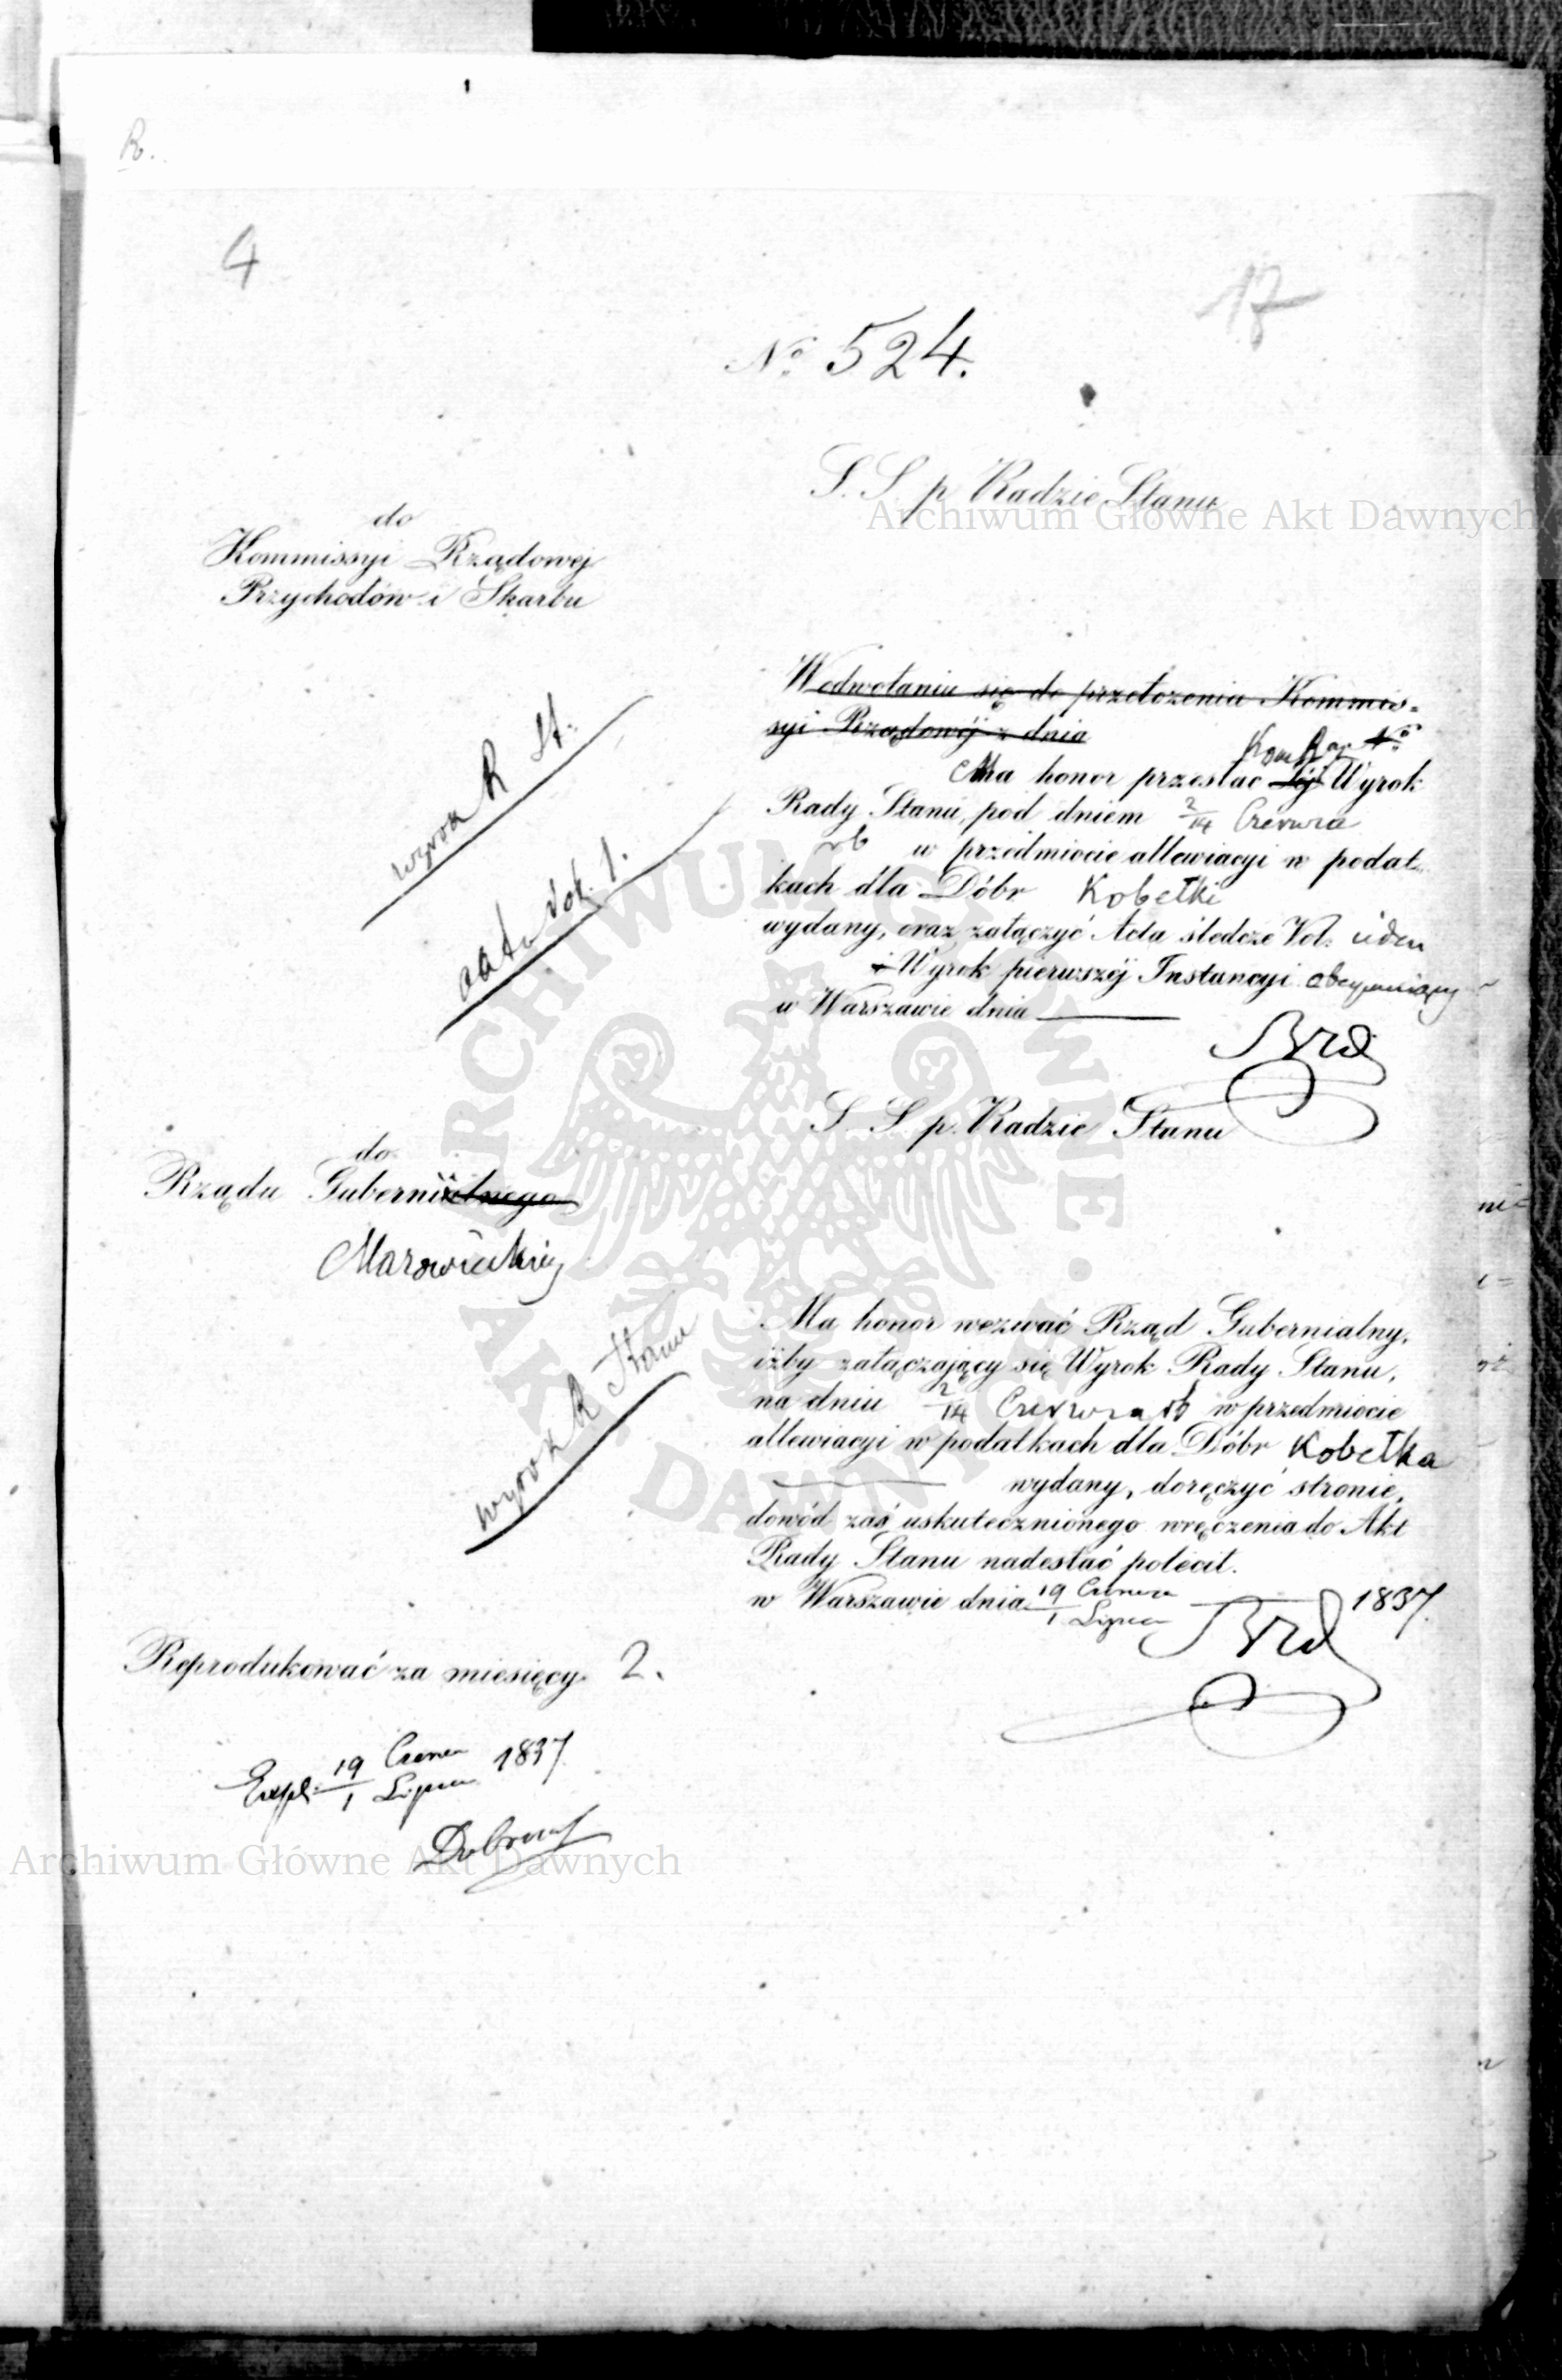 R.
4
17
No 524.
S. S. p. Radzie Stanu
do
Kommissyi Rządowej
Przychodów i Skarbu
W odwołaniu się do przełożenia Kommis=
syi Rządowéj z dnia
No
Ma honor przesłać Jéj Wyrok
Rady Stanu, pod dniem 2/14 Czerwca
rb w przedmiocie allewiacyi w podat=
kach dla Dóbr Kobełki
wydany, oraz załączyć Acta śledcze Vol: jeden
i Wyrok pierwszéj Instancyi obejmujący
w Warszawie dnia
wyrok R St:
akta vol. 1.
S. S. p. Radzie Stanu
do
Rządu Gubernialnego
Mazowieckiej
Ma honor wezwać Rząd Gubernialny,
iżby załączający się Wyrok Rady Stanu,
na dniu 2/14 Czerwca rb w przedmiocie
allewiacyi w podatkach dla Dóbr Kobełka
wydany, doręczyć stronie,
dowód zaś uskutecznionego wręczenia do Akt
Rady Stanu nadesłać polecił.
w Warszawie dnia 19 Czerwca / 1 Lipca 1837.
wyrok R Stanu
Reprodukować za miesięcy 2.
Exp: 19 Czerwca / 1 Lipca 1837
Archiwum Główne Akt Dawnych
Archiwum Główne Akt Dawnych
ARCHIWUM GŁÓWNE AKT DAWNYCH